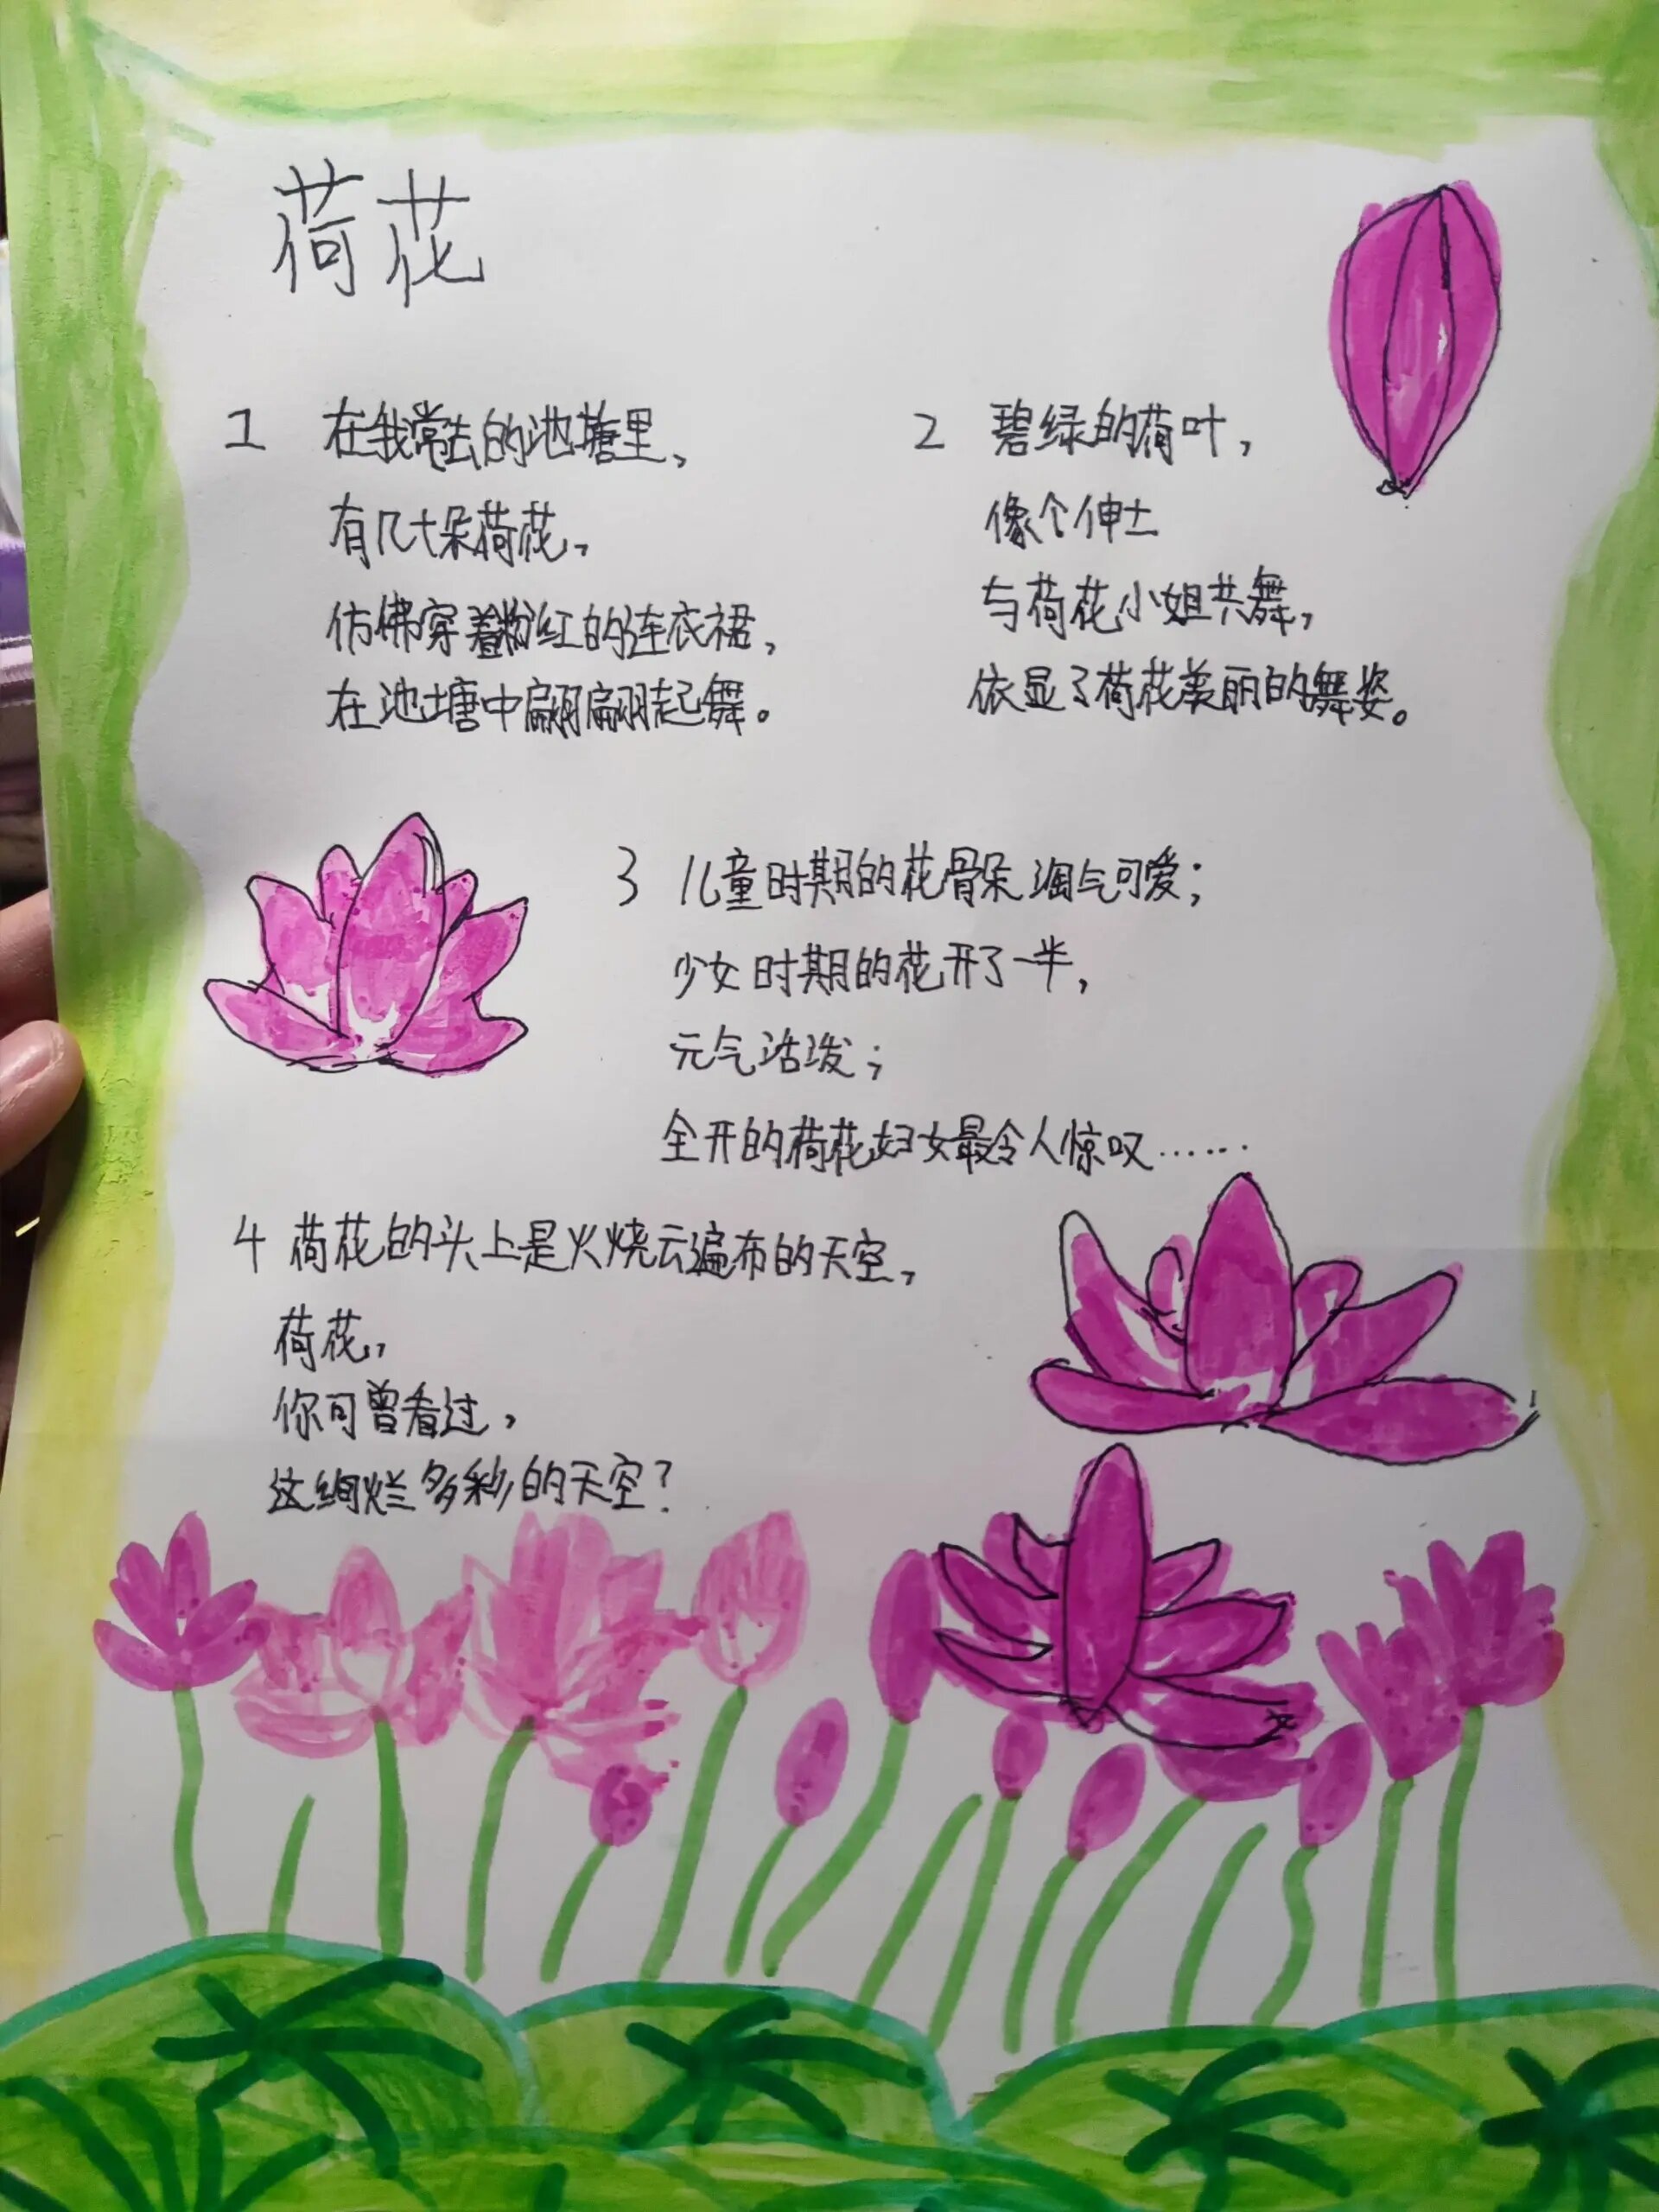 荷花
1 在我常去的池塘里,
有几十朵荷花,
仿佛穿着粉红的连衣裙,
在池塘中翩翩起舞。
2 碧绿的荷叶,
像个伸士
与荷花小姐共舞,
依显了荷花美丽的舞姿。
3 儿童时期的花骨朵淘气可爱;
少女时期的花开了一半,
元气活泼;
全开的荷花妇女最令人惊叹……
4 荷花的头上是火烧云遍布的天空,
荷花,
你可曾看过,
这绚烂多彩的天空?